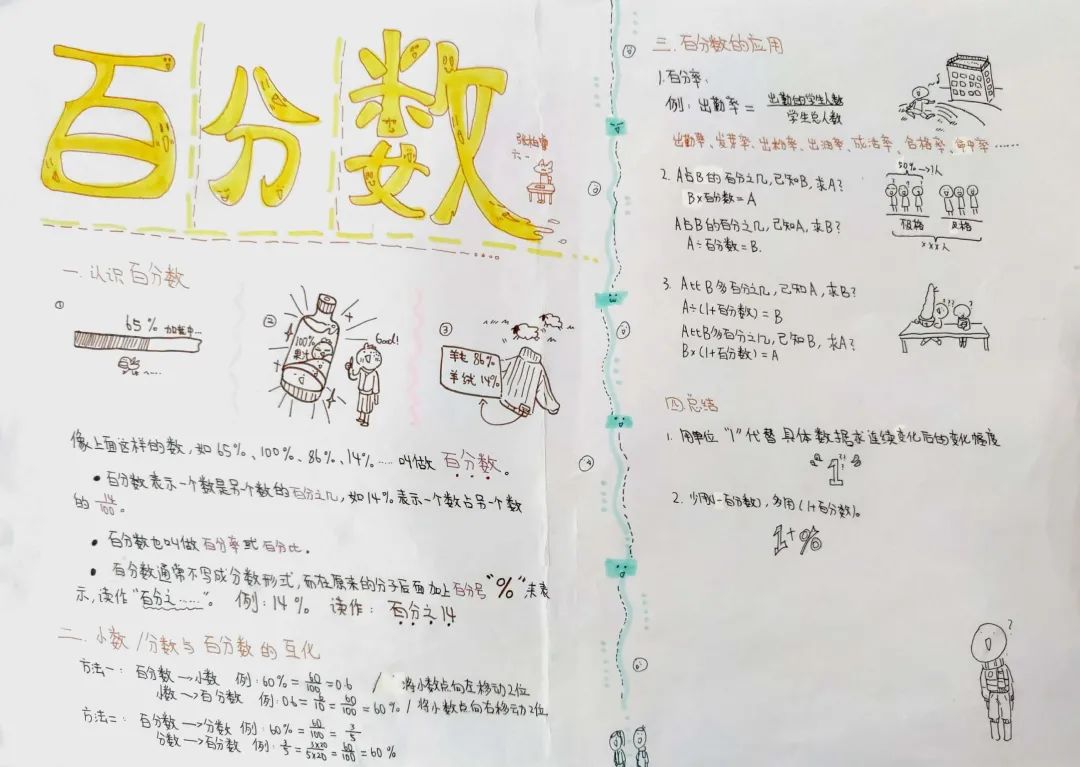 百分数
六一
一. 认识百分数
①
65% 加载中…
②
100%
果汁
Good!
③
羊毛 86%
羊绒 14%
像上面这样的数,如65%、100%、86%、14%……叫做 百分数。
• 百分数表示一个数是另一个数的百分之几,如14%表示一个数占另一个数
的 14/100。
• 百分数也叫做百分率或百分比。
• 百分数通常不写成分数形式,而在原来的分子后面加上百分号"%"来表
示,读作"百分之……"。 例:14% 读作:百分之14
二. 小数/分数与百分数的互化
方法一: 百分数→小数 例:60% = 60/100 = 0.6 / 将小数点向左移动2位
小数→百分数 例:0.6 = 6/10 = 60/100 = 60% / 将小数点向右移动2位
方法二: 百分数→分数 例:60% = 60/100 = 3/5
分数→百分数 例:3/5 = 3×20/5×20 = 60/100 = 60%
三. 百分数的应用
1. 百分率:
例:出勤率 = 出勤的学生人数/学生总人数
出勤率、发芽率、出粉率、出油率、成活率、合格率、命中率……
2. A占B的百分之几,已知B,求A?
B×百分数=A
A占B的百分之几,已知A,求B?
A÷百分数=B.
50% →?人
及格
×××人
3. A比B多百分之几,已知A,求B?
A÷(1+百分数)=B
A比B多百分之几,已知B,求A?
B×(1+百分数)=A
四. 总结
1. 用单位"1"代替具体数据求连续变化后的变化幅度
1
??
?
2. 少用(1-百分数),多用(1+百分数)。
1+%
?